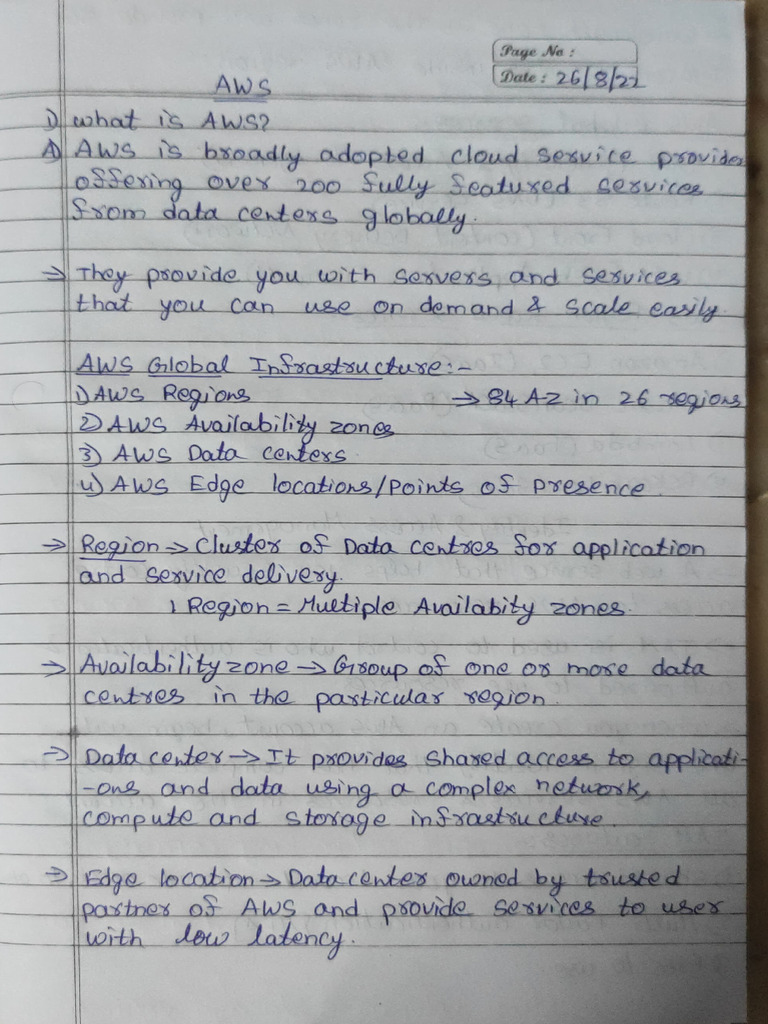 Page No :
Date : 26/8/22
AWS
1) what is AWS?
A) AWS is broadly adopted cloud service provider
offering over 200 fully featured services
from data centers globally.
→ They provide you with servers and services
that you can use on demand & scale easily
AWS Global Infrastructure:-
1) AWS Regions → 84 AZ in 26 regions
2) AWS Availability zones
3) AWS Data centers
4) AWS Edge locations/Points of presence
→ Region → Cluster of Data centres for application
and service delivery.
1 Region = Multiple Availabity zones.
→ Availability zone → Group of one or more data
centres in the particular region.
→ Data center → It provides shared access to applicati-
-ons and data using a complex network,
compute and storage infrastructure.
→ Edge location → Data center owned by trusted
partner of AWS and provide services to user
with low latency.